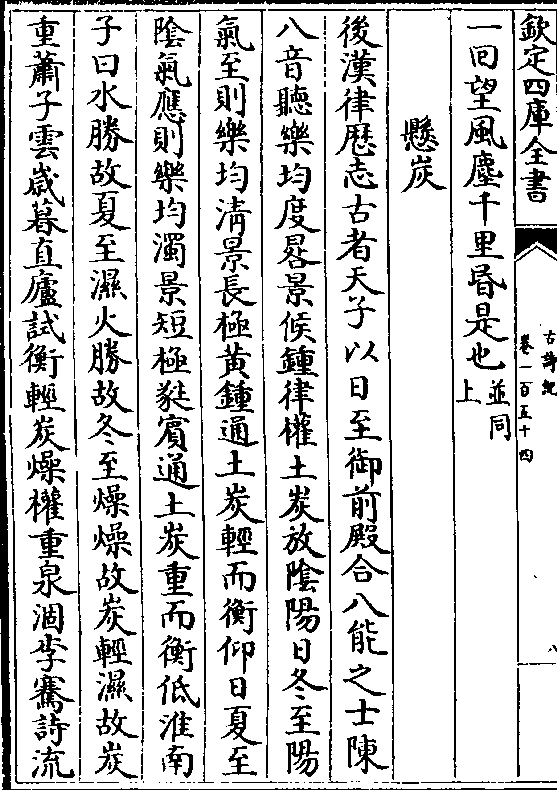 欽定四庫全書
古詩紀
卷一百五十四
八
一回望風塵千里昏是也並同上
懸炭
後漢律歴志古者天子以日至御前殿合八能之士陳
八音聽樂均度晷景候鍾律權土炭放隂陽日冬至陽
氣至則樂均清景長極黄鍾通土炭輕而衡仰日夏至
隂氣應則樂均濁景短極蕤賓通土炭重而衡低淮南
子曰水勝故夏至濕火勝故冬至燥燥故炭輕濕故炭
重蕭子雲歲暮直廬試衡輕炭燥權重泉涸李騫詩流